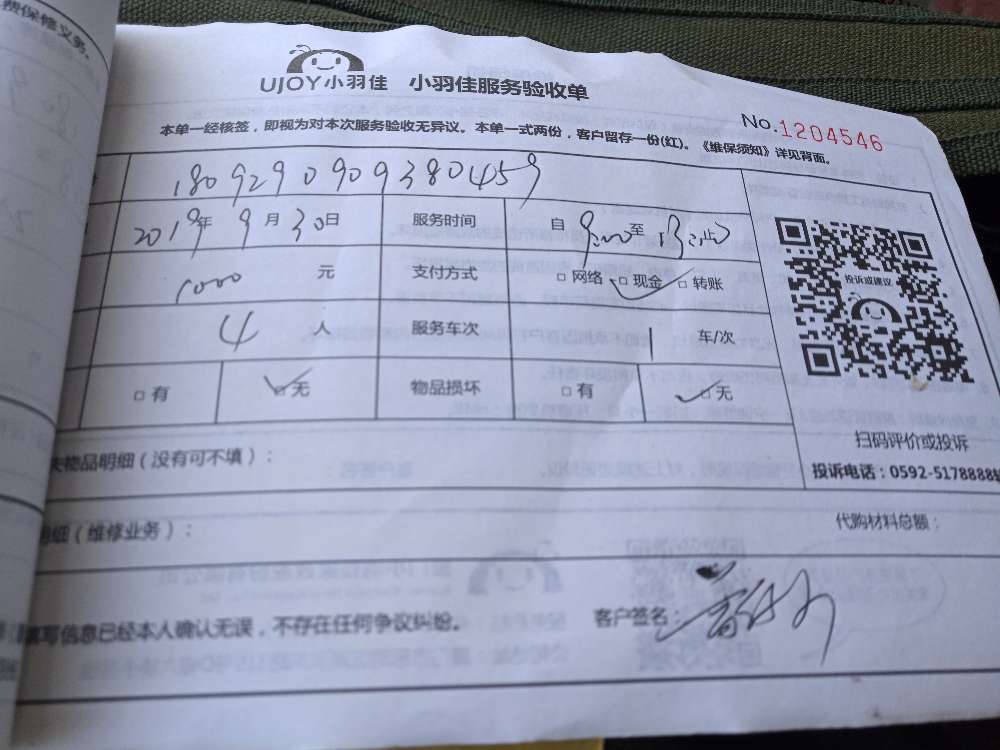 费保修义务。
UJOY小羽佳 小羽佳服务验收单
No.1204546
本单一经核签，即视为对本次服务验收无异议。本单一式两份，客户留存一份(红)。《维保须知》详见背面。
180929090938 0459
2019年 9月30日 服务时间 自 8:00 至 13:00 止
1000 元 支付方式 □网络 □现金 □转账
4 人 服务车次 1 车/次
□有 □无 物品损坏 □有 □无
投诉或建议
扫码评价或投诉
投诉电话：0592-5178888
失物品明细（没有可不填）：
明细（维修业务）： 代购材料总额：
填写信息已经本人确认无误，不存在任何争议纠纷。 客户签名：